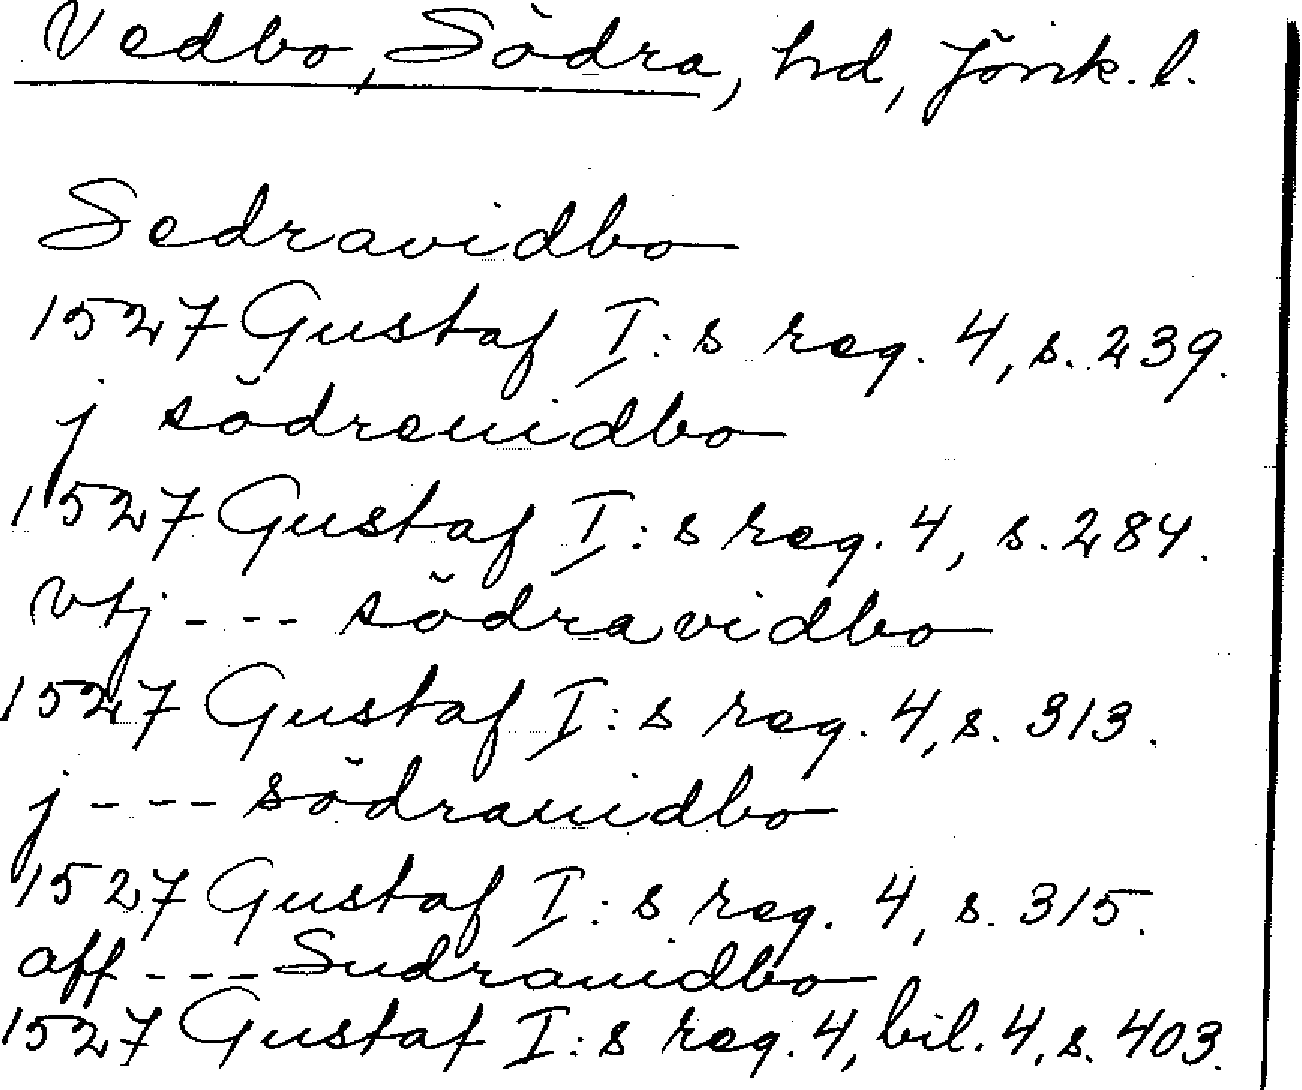 Vedbo, Södra, hd, Jönk. l.
Sedravidbo
1527 Gustaf I:s reg. 4, s. 239.
j södreuidbo
1527 Gustaf I:s reg. 4, s. 284.
vtj --- södravidbo
1527 Gustaf I:s reg. 4, s. 313.
j --- södrauidbo
1527 Gustaf I:s reg. 4, s. 315.
aff --- Sudrauidbo
1527 Gustaf I:s reg. 4, bil. 4, s. 403.